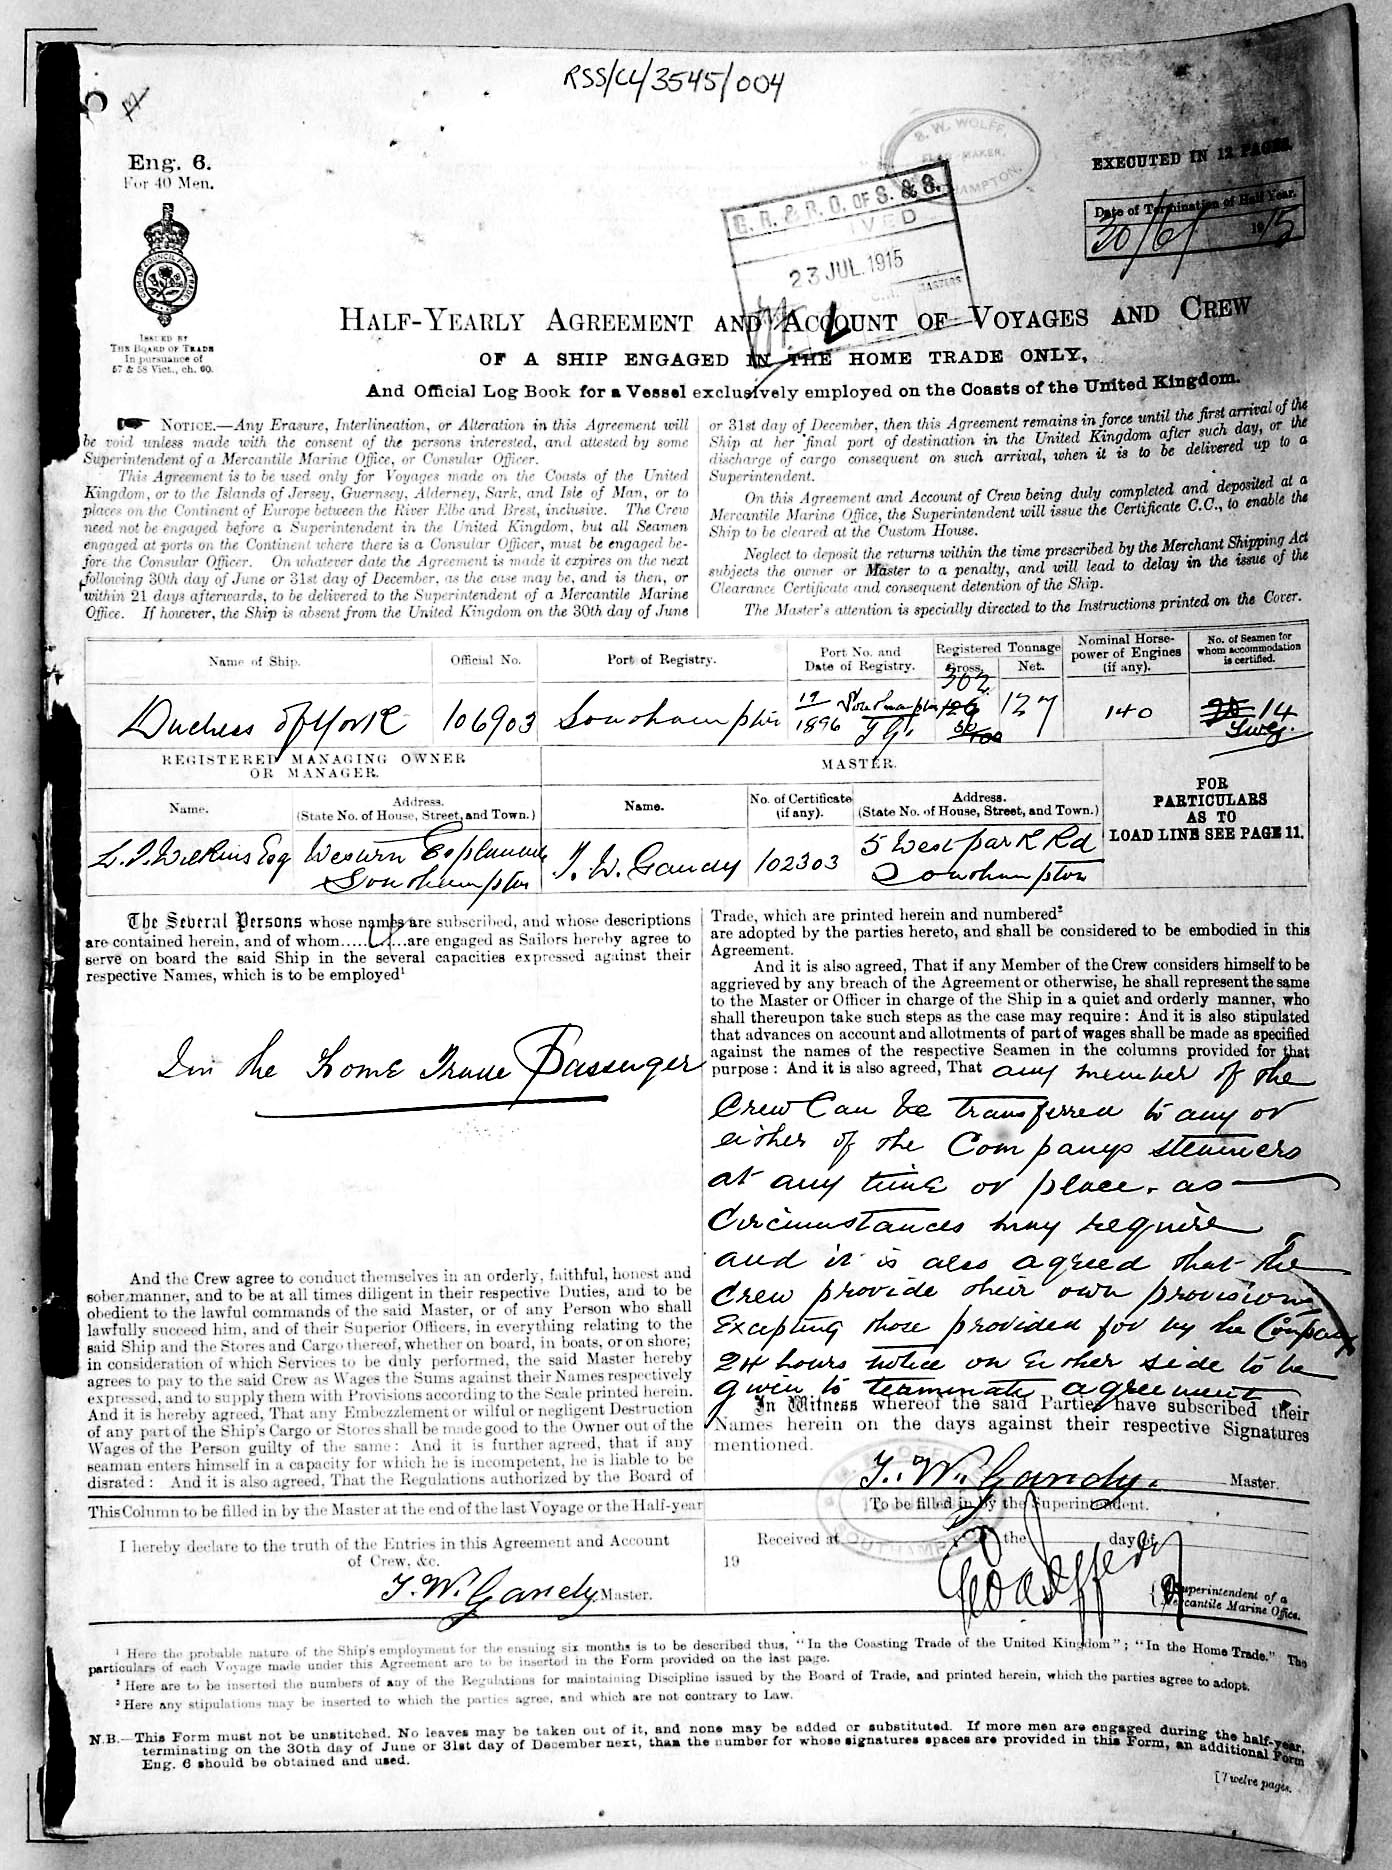 RSS/CL/3545/004
Eng. 6.
For 40 Men.
COM. OF COUNCIL FOR TRADE
ISSUED BY
THE BOARD OF TRADE
In pursuance of
57 & 58 Vict., ch. 60.
S. W. WOLFF,
FLAG MAKER,
HAMPTON.
G. R. & R. O. OF S. & S.
IVED
23 JUL. 1915
MASTERS
EXECUTED IN 12 PAGES.
Date of Termination of Half Year.
30/6/ 1915
HALF-YEARLY AGREEMENT AND ACCOUNT OF VOYAGES AND CREW
OF A SHIP ENGAGED IN THE HOME TRADE ONLY,
And Official Log Book for a Vessel exclusively employed on the Coasts of the United Kingdom.
NOTICE.—Any Erasure, Interlineation, or Alteration in this Agreement will
be void unless made with the consent of the persons interested, and attested by some
Superintendent of a Mercantile Marine Office, or Consular Officer.
This Agreement is to be used only for Voyages made on the Coasts of the United
Kingdom, or to the Islands of Jersey, Guernsey, Alderney, Sark, and Isle of Man, or to
places on the Continent of Europe between the River Elbe and Brest, inclusive. The Crew
need not be engaged before a Superintendent in the United Kingdom, but all Seamen
engaged at ports on the Continent where there is a Consular Officer, must be engaged be-
fore the Consular Officer. On whatever date the Agreement is made it expires on the next
following 30th day of June or 31st day of December, as the case may be, and is then, or
within 21 days afterwards, to be delivered to the Superintendent of a Mercantile Marine
Office. If however, the Ship is absent from the United Kingdom on the 30th day of June
or 31st day of December, then this Agreement remains in force until the first arrival of the
Ship at her final port of destination in the United Kingdom after such day, or the
discharge of cargo consequent on such arrival, when it is to be delivered up to a
Superintendent.
On this Agreement and Account of Crew being duly completed and deposited at a
Mercantile Marine Office, the Superintendent will issue the Certificate C.C., to enable the
Ship to be cleared at the Custom House.
Neglect to deposit the returns within the time prescribed by the Merchant Shipping Act
subjects the owner or Master to a penalty, and will lead to delay in the issue of the
Clearance Certificate and consequent detention of the Ship.
The Master's attention is specially directed to the Instructions printed on the Cover.
Name of Ship.
Official No.
Port of Registry.
Port No. and
Date of Registry.
Registered Tonnage
Gross.
Net.
Nominal Horse-
power of Engines
(if any).
No. of Seamen for
whom accommodation
is certified.
Duchess of York
106903
Southampton
17
1896
Southampton
302
127
140
14
REGISTERED MANAGING OWNER
OR MANAGER.
MASTER.
FOR
PARTICULARS
AS TO
LOAD LINE SEE PAGE 11.
Name.
Address.
(State No. of House, Street, and Town.)
Name.
No. of Certificate
(if any).
Address.
(State No. of House, Street, and Town.)
L. T. Wilkins Esq
Western Esplanade
Southampton
T. W. Gandy
102303
5 West park Rd
Southampton
The Several Persons whose names are subscribed, and whose descriptions
are contained herein, and of whom............are engaged as Sailors hereby agree to
serve on board the said Ship in the several capacities expressed against their
respective Names, which is to be employed¹
In the Home Trade Passenger
And the Crew agree to conduct themselves in an orderly, faithful, honest and
sober manner, and to be at all times diligent in their respective Duties, and to be
obedient to the lawful commands of the said Master, or of any Person who shall
lawfully succeed him, and of their Superior Officers, in everything relating to the
said Ship and the Stores and Cargo thereof, whether on board, in boats, or on shore;
in consideration of which Services to be duly performed, the said Master hereby
agrees to pay to the said Crew as Wages the Sums against their Names respectively
expressed, and to supply them with Provisions according to the Scale printed herein.
And it is hereby agreed, That any Embezzlement or wilful or negligent Destruction
of any part of the Ship's Cargo or Stores shall be made good to the Owner out of the
Wages of the Person guilty of the same: And it is further agreed, that if any
seaman enters himself in a capacity for which he is incompetent, he is liable to be
disrated: And it is also agreed, That the Regulations authorized by the Board of
Trade, which are printed herein and numbered²
are adopted by the parties hereto, and shall be considered to be embodied in this
Agreement.
And it is also agreed, That if any Member of the Crew considers himself to be
aggrieved by any breach of the Agreement or otherwise, he shall represent the same
to the Master or Officer in charge of the Ship in a quiet and orderly manner, who
shall thereupon take such steps as the case may require: And it is also stipulated
that advances on account and allotments of part of wages shall be made as specified
against the names of the respective Seamen in the columns provided for that
purpose: And it is also agreed, That any member of the
Crew Can be transferred to any or
either of the Companys steamers
at any time or place. as
Circumstances may require
and it is also agreed that the
Crew provide their own provisions
Excepting those provided for by the Company
24 hours notice on Either side to be
given to terminate agreement
In Witness whereof the said Parties have subscribed their
Names herein on the days against their respective Signatures
mentioned.
T. W. Gandy. Master.
This Column to be filled in by the Master at the end of the last Voyage or the Half-year
To be filled in by the Superintendent.
I hereby declare to the truth of the Entries in this Agreement and Account
of Crew, &c.
T. W. Gandy Master.
Received at the day of
19
Superintendent of a
Mercantile Marine Office.
¹ Here the probable nature of the Ship's employment for the ensuing six months is to be described thus, "In the Coasting Trade of the United Kingdom"; "In the Home Trade." The
particulars of each Voyage made under this Agreement are to be inserted in the Form provided on the last page.
² Here are to be inserted the numbers of any of the Regulations for maintaining Discipline issued by the Board of Trade, and printed herein, which the parties agree to adopt.
³ Here any stipulations may be inserted to which the parties agree, and which are not contrary to Law.
N.B.—This Form must not be unstitched. No leaves may be taken out of it, and none may be added or substituted. If more men are engaged during the half-year,
terminating on the 30th day of June or 31st day of December next, than the number for whose signatures spaces are provided in this Form, an additional Form
Eng. 6 should be obtained and used.
[Twelve pages.